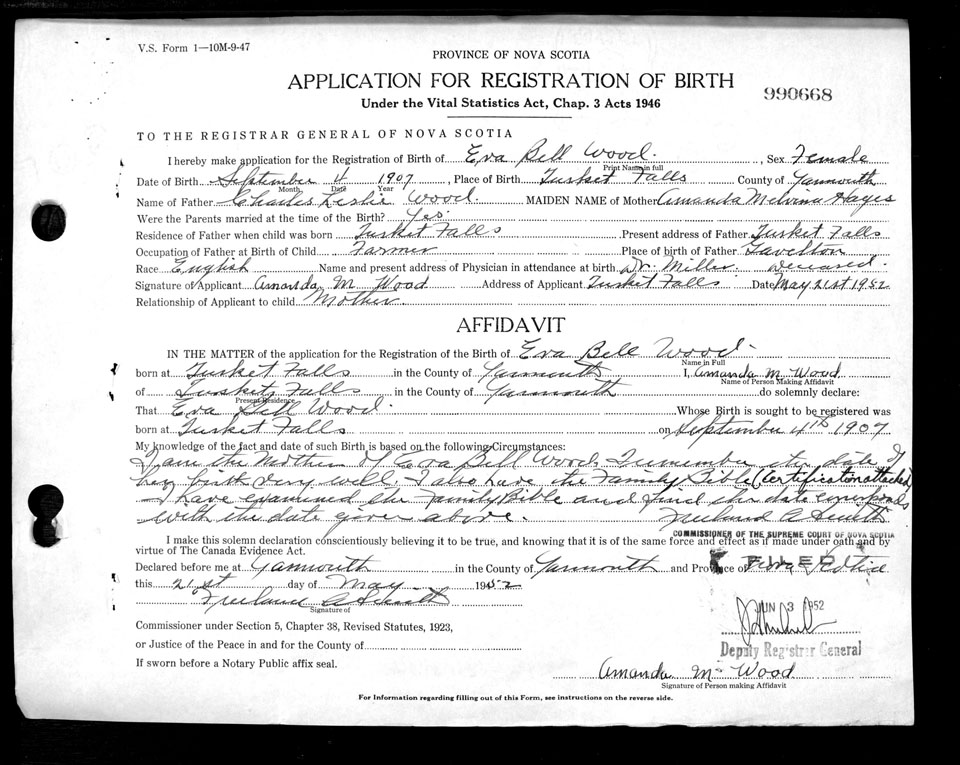 V.S. Form 1—10M-9-47
PROVINCE OF NOVA SCOTIA
APPLICATION FOR REGISTRATION OF BIRTH
990668
Under the Vital Statistics Act, Chap. 3 Acts 1946
TO THE REGISTRAR GENERAL OF NOVA SCOTIA
I hereby make application for the Registration of Birth of Eva Bell Wood. , Sex Female
Print Name in full
Date of Birth September 4 1907 , Place of Birth Tusket Falls County of Yarmouth
Month Date Year
Name of Father Charles Leslie Wood. MAIDEN NAME of Mother Amanda Melvina Hayes
Were the Parents married at the time of the Birth? Yes.
Residence of Father when child was born Tusket Falls Present address of Father Tusket Falls
Occupation of Father at Birth of Child Farmer Place of birth of Father Gavelton
Race English Name and present address of Physician in attendance at birth Dr. Miller. Deceased.
Signature of Applicant Amanda M Wood Address of Applicant Tusket Falls Date May 21st 1952
Relationship of Applicant to child Mother
AFFIDAVIT
IN THE MATTER of the application for the Registration of the Birth of Eva Bell Wood
Name in Full
born at Tusket Falls in the County of Yarmouth I, Amanda M. Wood
Name of Person Making Affidavit
of Tusket Falls in the County of Yarmouth do solemnly declare:
Present Residence
That Eva Bell Wood. Whose Birth is sought to be registered was
born at Tusket Falls on September 4th 1907
My knowledge of the fact and date of such Birth is based on the following Circumstances:
I am the Mother of Eva Bell Wood, I remember the date of
her birth very well. I also have the Family Bible (Certification attached)
I have examined the Family Bible and find the date corresponds
with the date given above. Freeland A Smith
COMMISSIONER OF THE SUPREME COURT OF NOVA SCOTIA
I make this solemn declaration conscientiously believing it to be true, and knowing that it is of the same force and effect as if made under oath and by
virtue of The Canada Evidence Act.
Declared before me at Yarmouth in the County of Yarmouth and Province of Nova Scotia
FILED
this 21st day of May 1952
Freeland A Smith
Signature of
JUN 3 1952
Commissioner under Section 5, Chapter 38, Revised Statutes, 1923,
or Justice of the Peace in and for the County of
Deputy Registrar General
If sworn before a Notary Public affix seal.
Amanda M Wood
Signature of Person making Affidavit
For Information regarding filling out of this Form, see instructions on the reverse side.